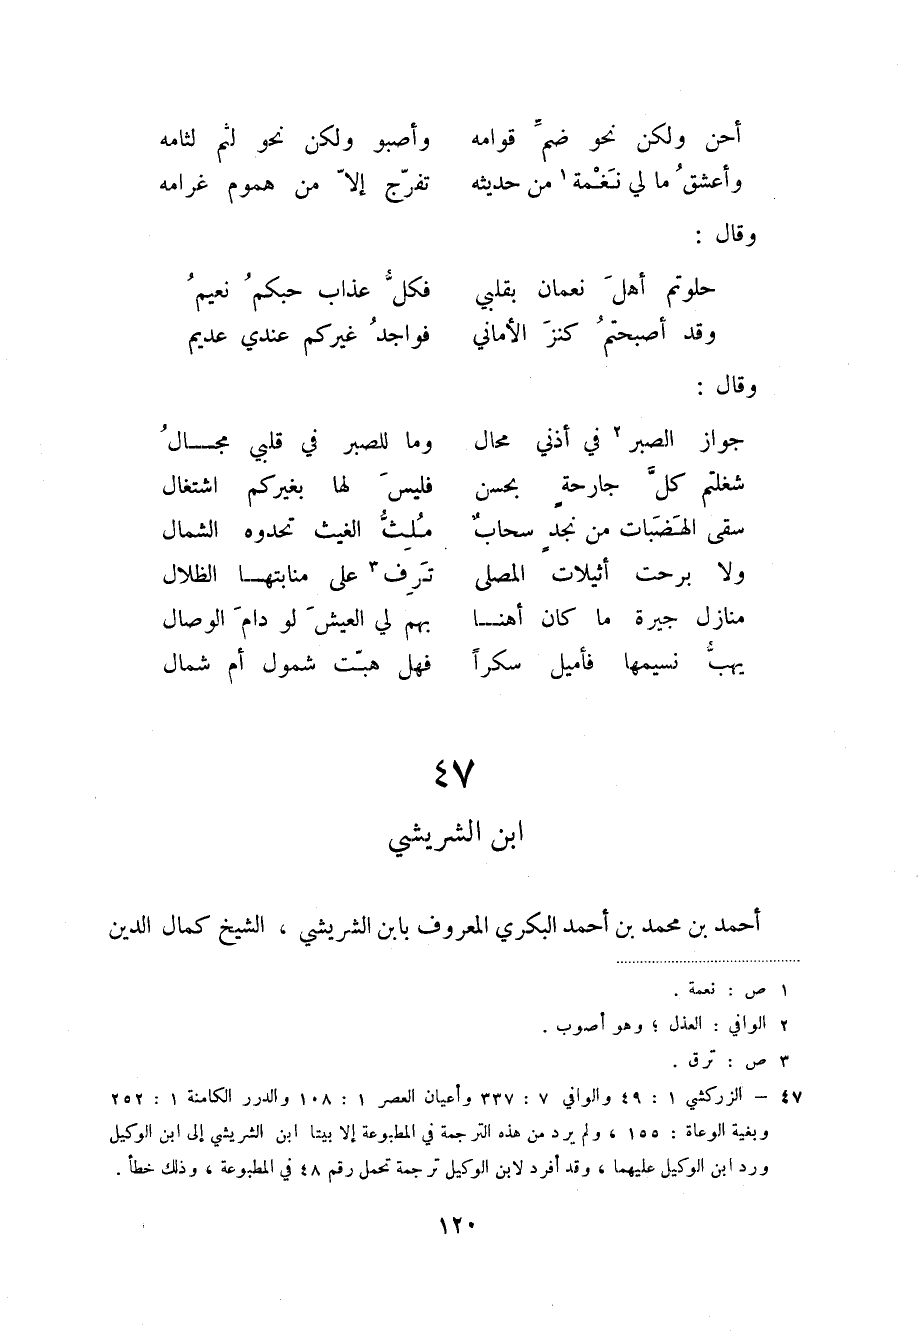 أحن ولكن نحو ضمِّ قوامه وأصبو ولكن نحو لثم لثامه
وأعشقُ ما لي نَغْمة ١ من حديثه تفرّج إلاّ من هموم غرامه
وقال :
حلوتم أهلَ نعمان بقلبي فكلُّ عذاب حبكمُ نعيمُ
وقد أصبحتمُ كنزَ الأماني فواجدُ غيركم عندي عديم
وقال :
جواز الصبر ٢ في أذني محال وما للصبر في قلبي مجــالُ
شغلتم كلَّ جارحةٍ بحسن فليسَ لها بغيركم اشتغال
سقى الهَضَبات من نجدٍ سحابٌ مُلِثُّ الغيث تحدوه الشمال
ولا برحت أثيلات المصلى تَرِف ٣ على منابتهــا الظلال
منازل جيرة ما كان أهنــا بهم لي العيشَ لو دامَ الوصال
يهبُّ نسيمها فأميل سكراً فهل هبّت شمول أم شمال
٤٧
ابن الشريشي
أحمد بن محمد بن أحمد البكري المعروف بابن الشريشي ، الشيخ كمال الدين
١ ص : نعمة .
٢ الوافي : العذل ؛ وهو أصوب .
٣ ص : ترق .
٤٧ – الزركشي ١ : ٤٩ والوافي ٧ : ٣٣٧ وأعيان العصر ١ : ١٠٨ والدرر الكامنة ١ : ٢٥٢
وبغية الوعاة : ١٥٥ ، ولم يرد من هذه الترجمة في المطبوعة إلا بيتا ابن الشريشي إلى ابن الوكيل
ورد ابن الوكيل عليهما ، وقد أفرد لابن الوكيل ترجمة تحمل رقم ٤٨ في المطبوعة ، وذلك خطأ .
١٢٠